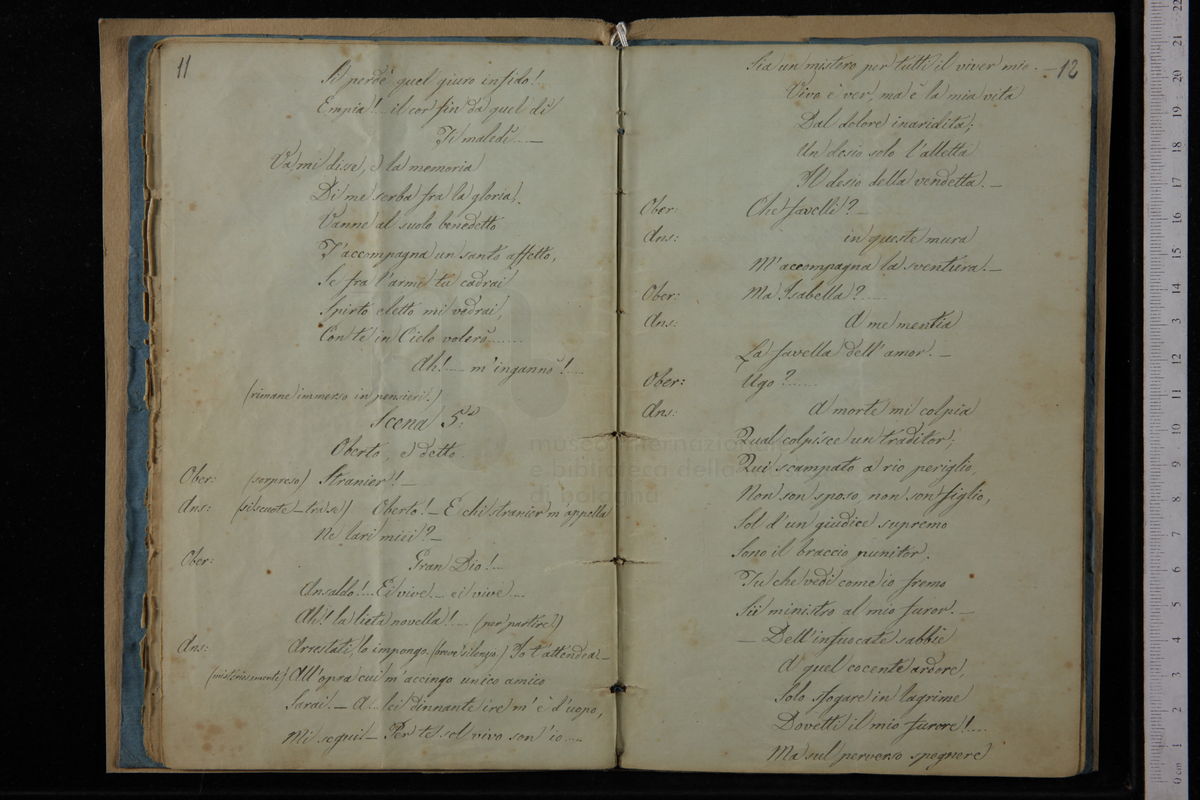 11
Si perdè quel giuro infido!
Empia! il cor fin da quel dì
Ti maledì....—
Va, mi disse, e la memoria
Di me serba fra la gloria!.
Vanne al suolo benedetto
T'accompagna un santo affetto,
Se fra l'armi tu cadrai
Spirto eletto mi vedrai,
Con te in Cielo volerò.......
Ah!.... m'ingannò!....
(rimane immerso in pensieri.)
Scena 5ª
Oberto, e detto.
Ober: (sorpreso) Stranier!! —
Ans: (si scuote — tra sè) Oberto! — E chi stranier m'appella
Ne lari miei? —
Ober: Gran Dio!...
Ansaldo!... Ei vive — ei vive....
Ah! la lieta novella!!.... (per partire)
Ans: Arrestati, lo impongo. (breve silenzo.) Io t'attendea! —
(misteriosamente) All'opra cui m'accingo unico amico
Sarai! — A lei dinnante ire m'è d'uopo,
Mi segui! — Per te sol vivo son'io....
12
Sia un mistero per tutti il viver mio. —
Vivo è ver, ma è la mia vita
Dal dolore inaridita;
Un desio solo l'alletta
Il desio della vendetta. —
Ober: Che favelli? —
Ans: in queste mura
M'accompagna la sventura. —
Ober: Ma Isabella?.....
Ans: A me mentia
La favella dell'amor. —
Ober: Ugo?......
Ans: A morte mi colpia
Qual colpisce un traditor.
Qui scampato a rio periglio,
Non son sposo, non son figlio,
Sol d'un giudice supremo
Sono il braccio punitor.
Tu che vedi com'io fremo
Sii ministro al mio furor. —
— Dell'infuocate sabbie
A quel cocente ardore,
Solo sfogare in lagrime
Dovetti il mio furore!....
Ma sul perverso spegnere
museo internazionale
e biblioteca della
di bologna